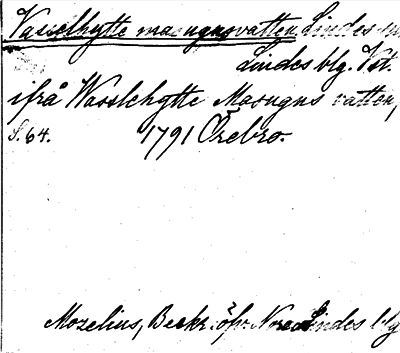 Vasselhytte masugnsvatten Lindes sn.
Lindes blg. Vst.
ifrå Wasslehytte Masugns vatten,
S. 64. 1791 Örebro.
Mozelius, Beskr. öfv. Nora Lindes blg